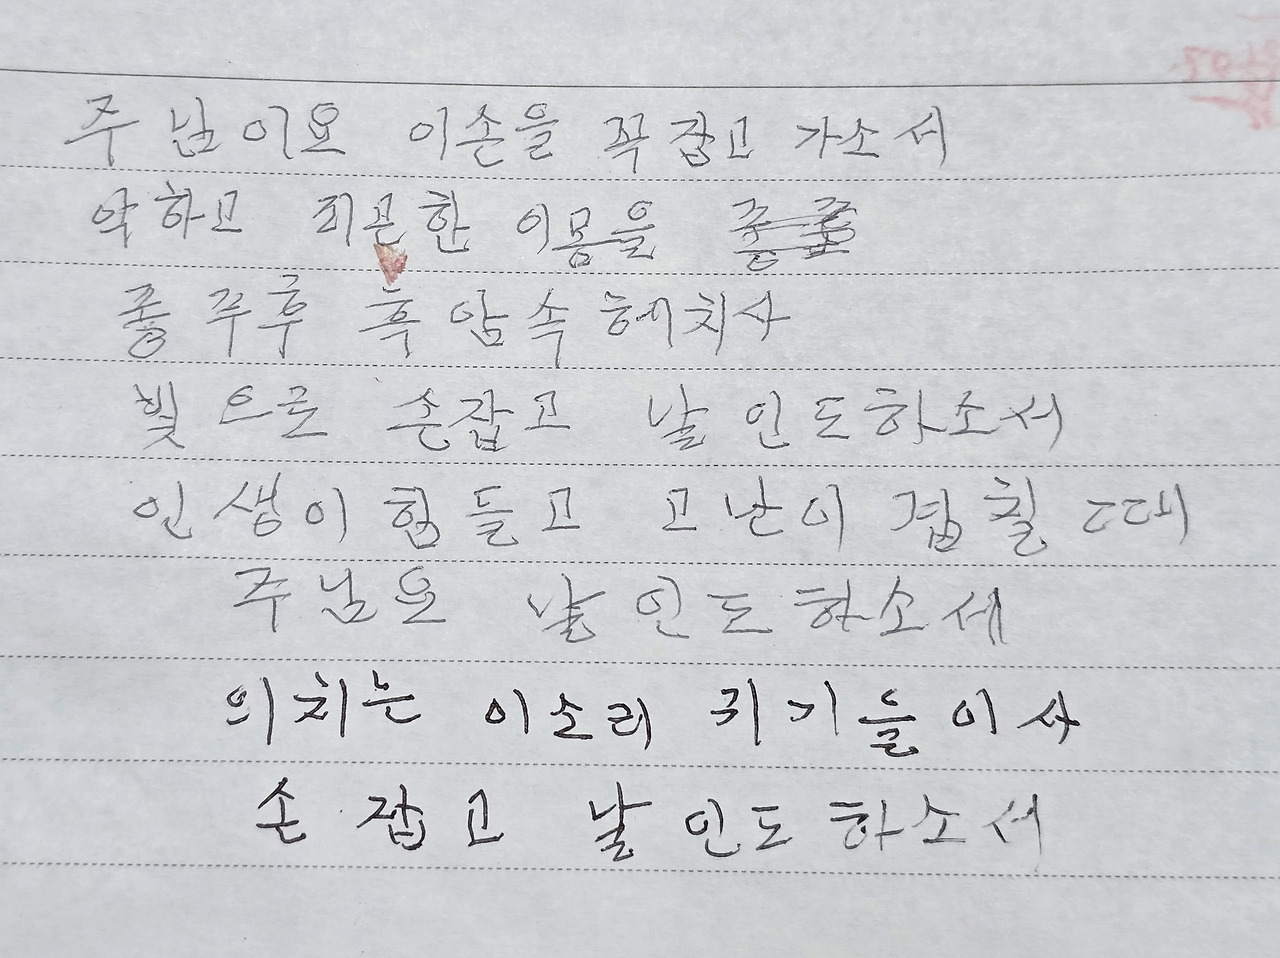 주님이요 이손을 꼭잡고 가소서
약하고 피곤한 이몸을
흥 주후 흑암속 헤치사
빛으로 손잡고 날 인도하소서
인생이 힘들고 고난이 겹칠 때
주님요 날 인도하소세
외치는 이소리 귀기울이사
손잡고 날 인도하소서